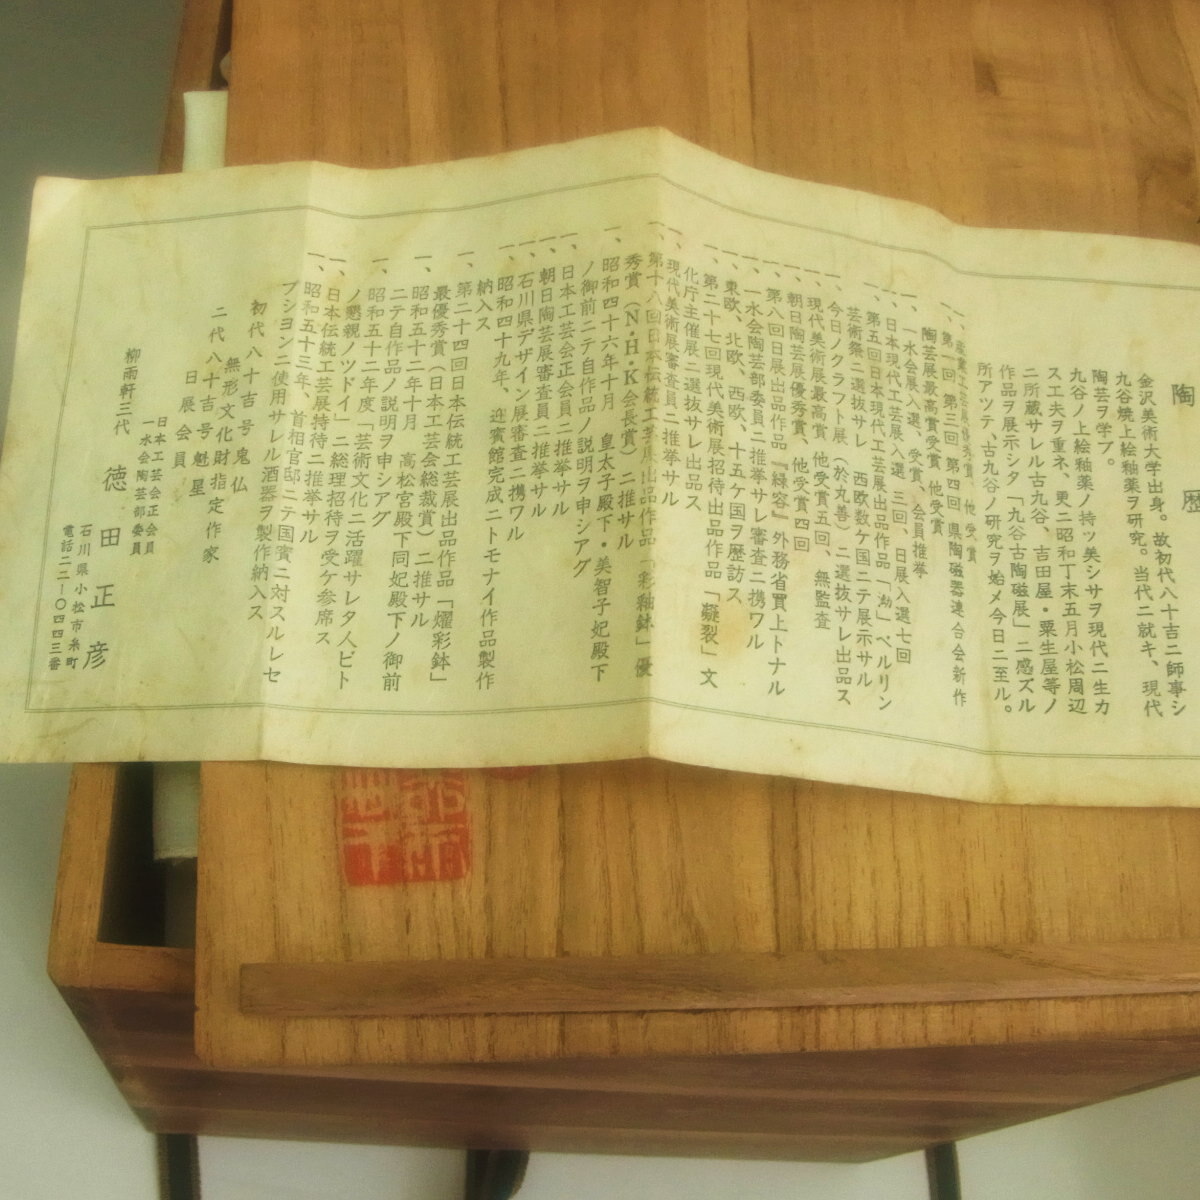 陶歴
金沢美術大学出身。故初代八十吉ニ師事シ
九谷焼上絵釉薬ヲ研究。当代ニ就キ、現代
陶芸ヲ学ブ。
九谷ノ上絵釉薬ノ持ツ美シサヲ現代ニ生カ
ス工夫ヲ重ネ、更ニ昭和丁末五月小松周辺
ニ所蔵サレル古九谷、吉田屋・粟生屋等ノ
作品ヲ展示シタ「九谷古陶磁展」ニ感ズル
所アツテ古九谷ノ研究ヲ始メ今日ニ至ル。
一、産業工芸展優秀賞、他受賞
一、第一回、第三回、第四回県陶磁器連合会新作
陶芸展最高賞受賞、他受賞
一、一水会展入選、受賞、会員推挙
一、日本現代工芸展入選三回、日展入選七回
一、第五回日本現代工芸展出品作品「泑」ベルリン
芸術祭ニ選抜サレ 西欧数ケ国ニテ展示サル
一、今日ノクラフト展(於丸善)ニ選抜サレ出品ス
一、現代美術展最高賞、他受賞五回、無監査
一、朝日陶芸展優秀賞、他受賞四回
一、第八回日展出品作品『緑容』外務省買上トナル
一、一水会陶芸部委員ニ推挙サレ審査ニ携ワル
一、東欧、北欧、西欧、十五ケ国ヲ歴訪ス
一、第二十七回現代美術展招待出品作品「凝裂」文
化庁主催展ニ選抜サレ出品ス
一、現代美術展審査員ニ推挙サル
一、第十八回日本伝統工芸展出品作品「彩釉鉢」優
秀賞(N・H・K会長賞)ニ推サル
一、昭和四十六年十月 皇太子殿下・美智子妃殿下
ノ御前ニテ自作品ノ説明ヲ申シアグ
一、日本工芸会正会員ニ推挙サル
一、朝日陶芸展審査員ニ推挙サル
一、石川県デザイン展審査ニ携ワル
一、昭和四十九年、迎賓館完成ニトモナイ作品製作
納入ス
一、第二十四回日本伝統工芸展出品作品「燿彩鉢」
最優秀賞(日本工芸会総裁賞)ニ推サル
一、昭和五十二年十月 高松宮殿下同妃殿下ノ御前
ニテ自作品ノ説明ヲ申シアグ
一、昭和五十二年度「芸術文化ニ活躍サレタ人ビト
ノ懇親ノツドイ」ニ総理招待ヲ受ケ参席ス
一、日本伝統工芸展特待ニ推挙サル
一、昭和五十三年、首相官邸ニテ国賓ニ対スルレセ
プシヨンニ使用サルル酒器ヲ製作納入ス
初代八十吉号鬼仏
無形文化財指定作家
二代八十吉号魁星
日展会員
日本工芸会正会員
一水会陶芸部委員
柳雨軒三代 徳田正彦
石川県小松市糸町
電話二二-〇四四三番